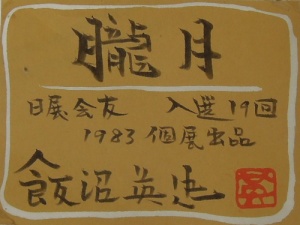 朧月
日展会友 入選19回
1983 個展出品
飯沼英忠